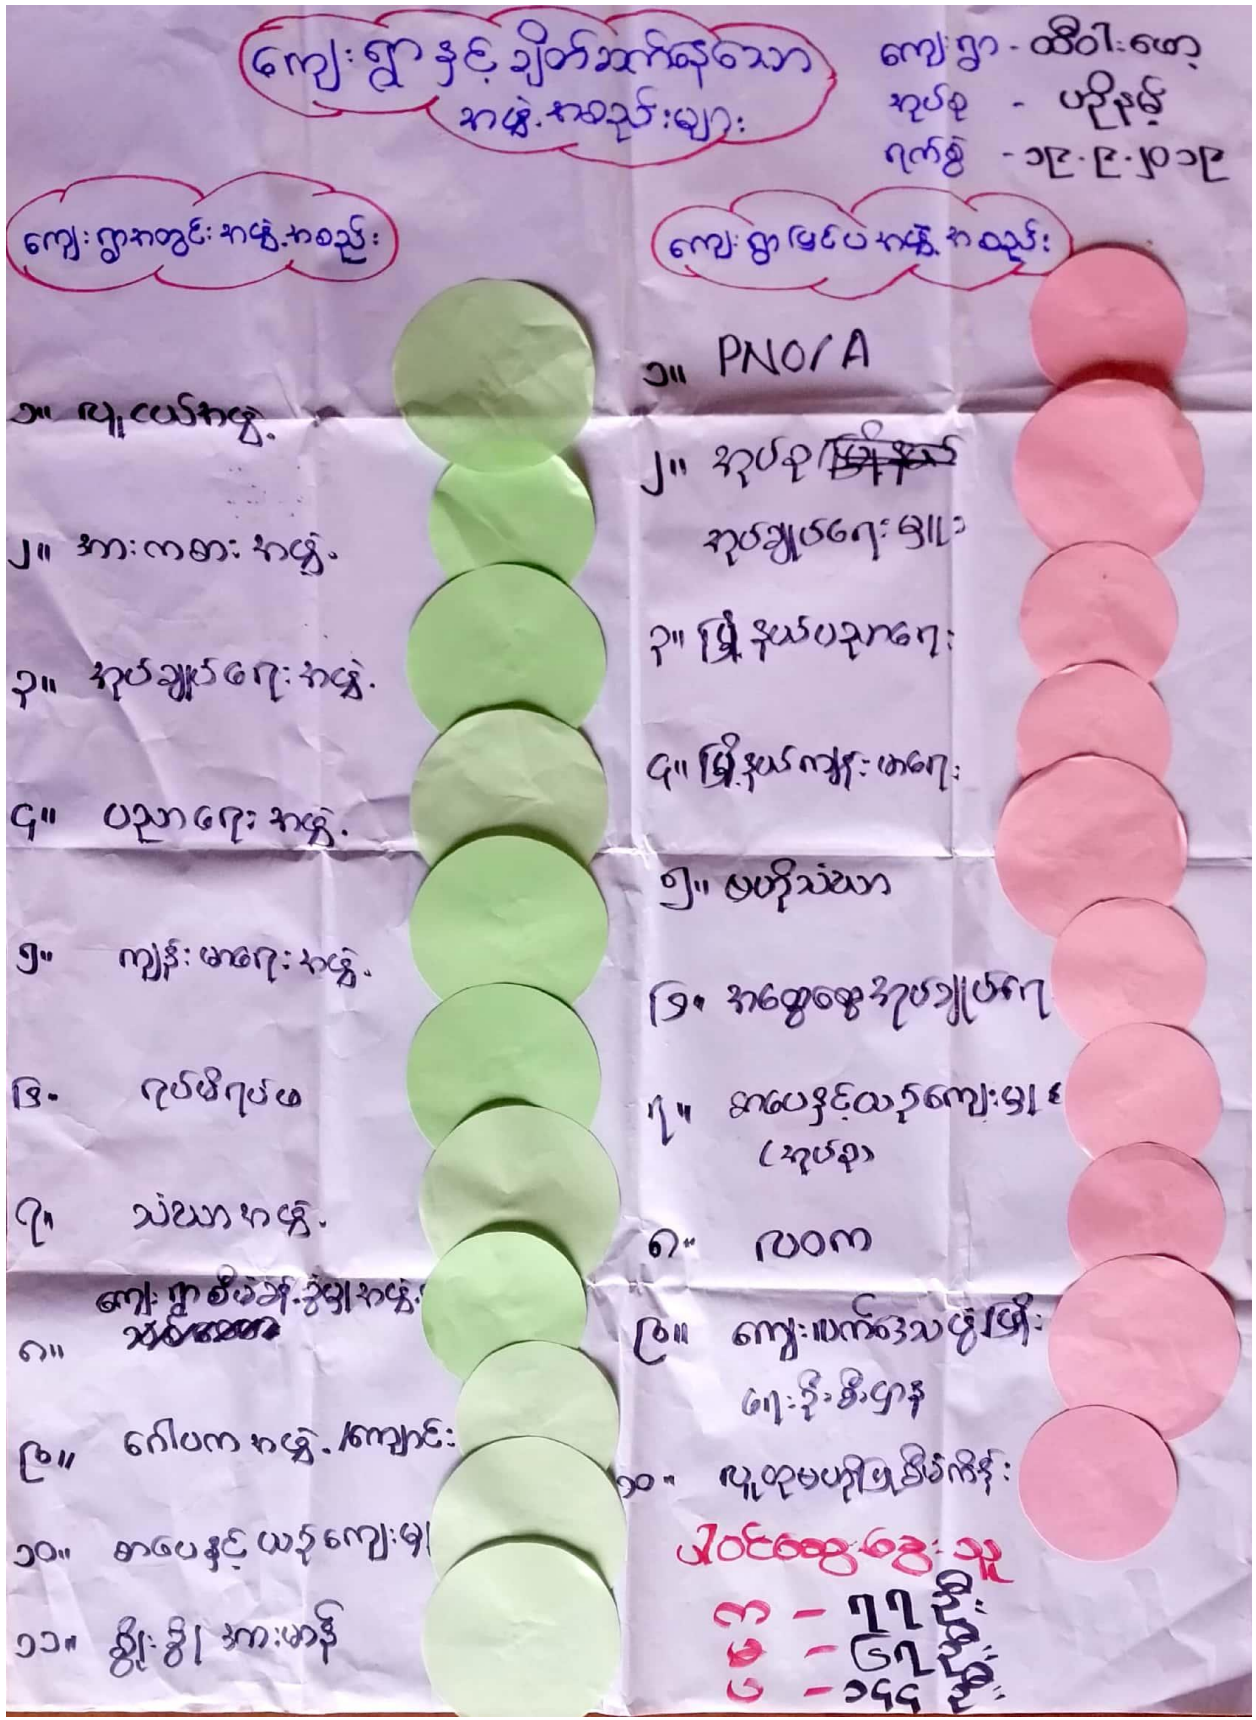 ကျေးရွာနှင့် ချိတ်ဆက်နေသော
အဖွဲ့အစည်းများ
ကျေးရွာ - ထီဝါးဖော့
အုပ်စု - ပဉိနမ့်
ရက်စွဲ - ၁၉.၉.၂၀၁၉
ကျေးရွာအတွင်းအဖွဲ့အစည်း
၁။ လူငယ်အဖွဲ့
၂။ အားကစားအဖွဲ့
၃။ အုပ်ချုပ်ရေးအဖွဲ့
၄။ ပညာရေးအဖွဲ့
၅။ ကျန်းမာရေးအဖွဲ့
၆။ ရပ်မိရပ်ဖ
၇။ သံဃာအဖွဲ့
ကျေးရွာစီမံခန့်ခွဲမှုအဖွဲ့
၈။
၉။ ဂေါပကအဖွဲ့/ကျောင်း
၁၀။ စာပေနှင့်ယဉ်ကျေးမှု
၁၁။ စွိုးစွိုအားမာန်
ကျေးရွာပြင်ပအဖွဲ့အစည်း
၁။ PNO/A
၂။ အုပ်စု
အုပ်ချုပ်ရေးမှူး
၃။ မြို့နယ်ပညာရေး
၄။ မြို့နယ်ကျန်းမာရေး
၅။ မဟိုသံဃာ
၆။ အထွေထွေအုပ်ချုပ်ရေး
၇။ စာပေနှင့်ယဉ်ကျေးမှု
(အုပ်စု)
၈။ လဝက
၉။ ကျေးလက်ဒေသဖွံ့ဖြိုး
ရေးဦးစီးဌာန
၁၀။ လူထုဗဟိုပြုစီမံကိန်း
ပါဝင်ဆွေးနွေးသူ
က - ၇၇ ဦး
မ - ၆၇ ဦး
ပ - ၁၄၄ ဦး